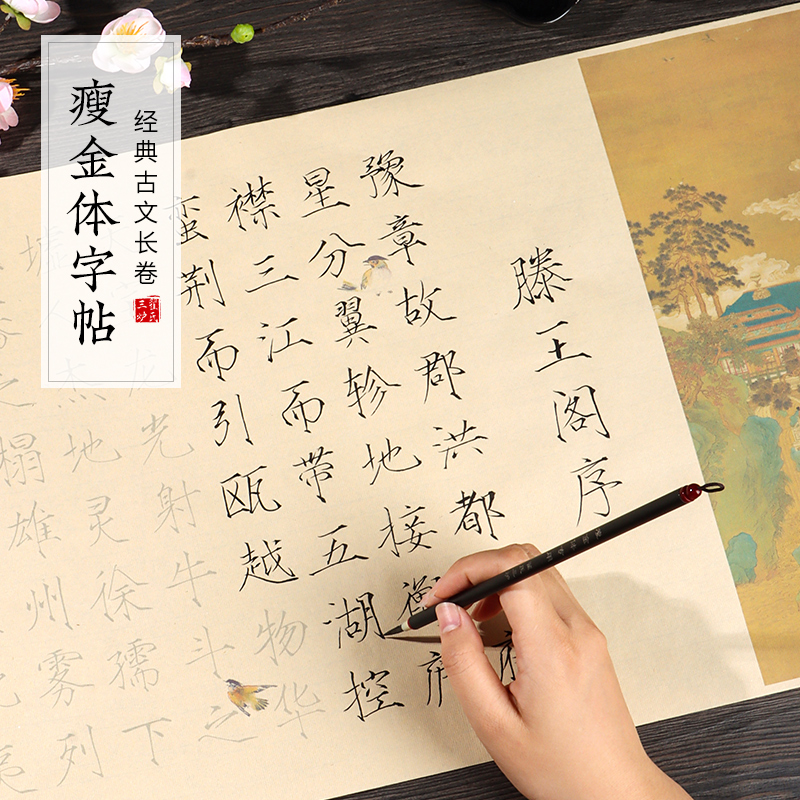 瘦金体字帖
经典古文长卷
滕王阁序
豫章故郡洪都府
星分翼轸地接衡
襟三江而带五湖控
蛮荆而引瓯越物华
龙光射牛斗之
墟杰地灵徐孺下
之榻雄州雾列
夷